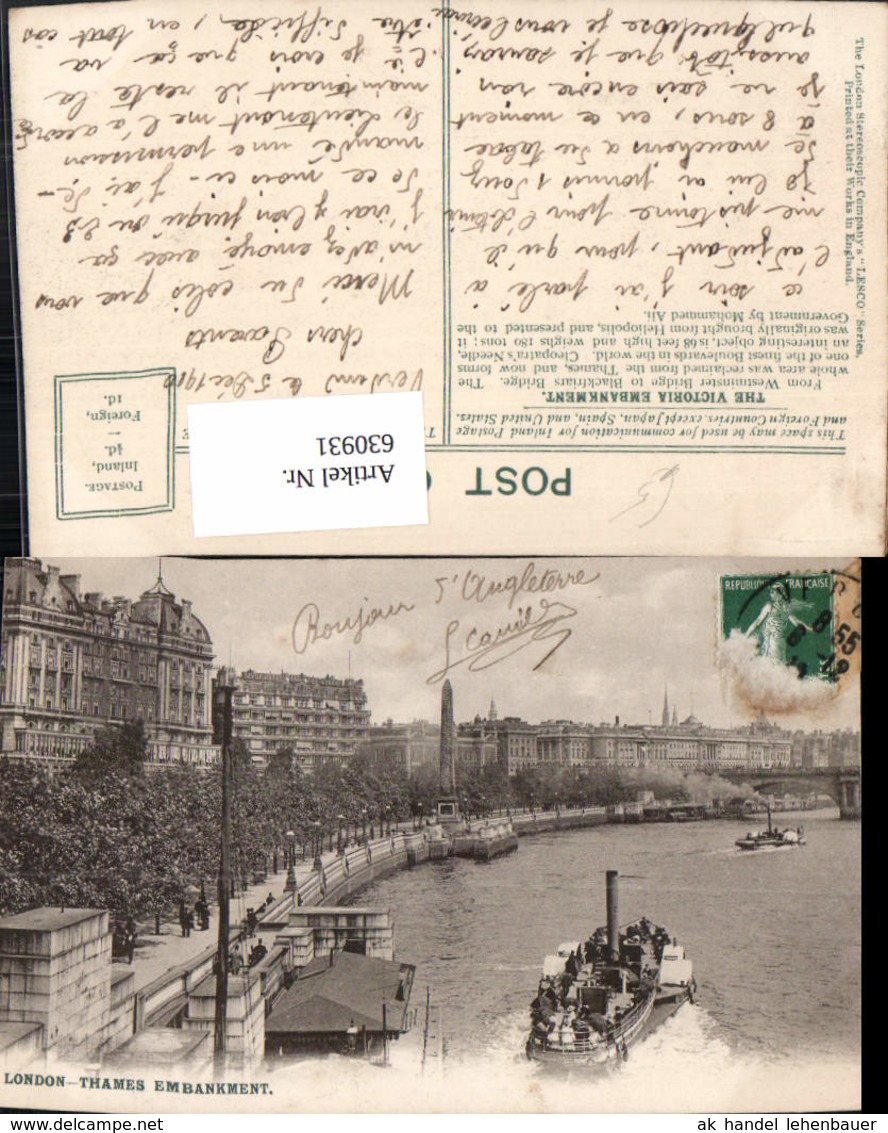 POST C
POSTAGE.
Inland,
½d.
—
Foreign,
1d.
Artikel Nr.
630931
This space may be used for communication for Inland Postage
and Foreign Countries, except Japan, Spain, and United States.
THE VICTORIA EMBANKMENT.
From Westminster Bridge to Blackfriars Bridge. The
whole area was reclaimed from the Thames, and now forms
one of the finest Boulevards in the world. Cleopatra's Needle,
an interesting object, is 68 feet high and weighs 180 tons; it
was originally brought from Heliopolis, and presented to the
Government by Mohammed Ali.
The London Stereoscopic Company's "LESCO" Series.
Printed at their Works in England.
le 5 Déc 1910
chers Parents
Merci du colis que vous
m'avez envoyé avec ça
j'irai bien jusqu'au 23
de ce mois ci - j'ai de-
mandé une permission
le lieutenant me l'a accordé
maintenant il reste la
je crois que ça va
être difficile, en tout cas
ce soir j'ai parlé à
l'adjudant, pour qu'il
me pistonne pour l'obtenir
je lui ai promis
de tabac
à 8 sous, en ce moment
je ne sais encore rien
aussitôt que je saurai
quelquechose je vous l'écrirai
Bonjour d'Angleterre
REPUBLIQUE FRANÇAISE
8 55
LONDON—THAMES EMBANKMENT.
ak handel lehenbauer